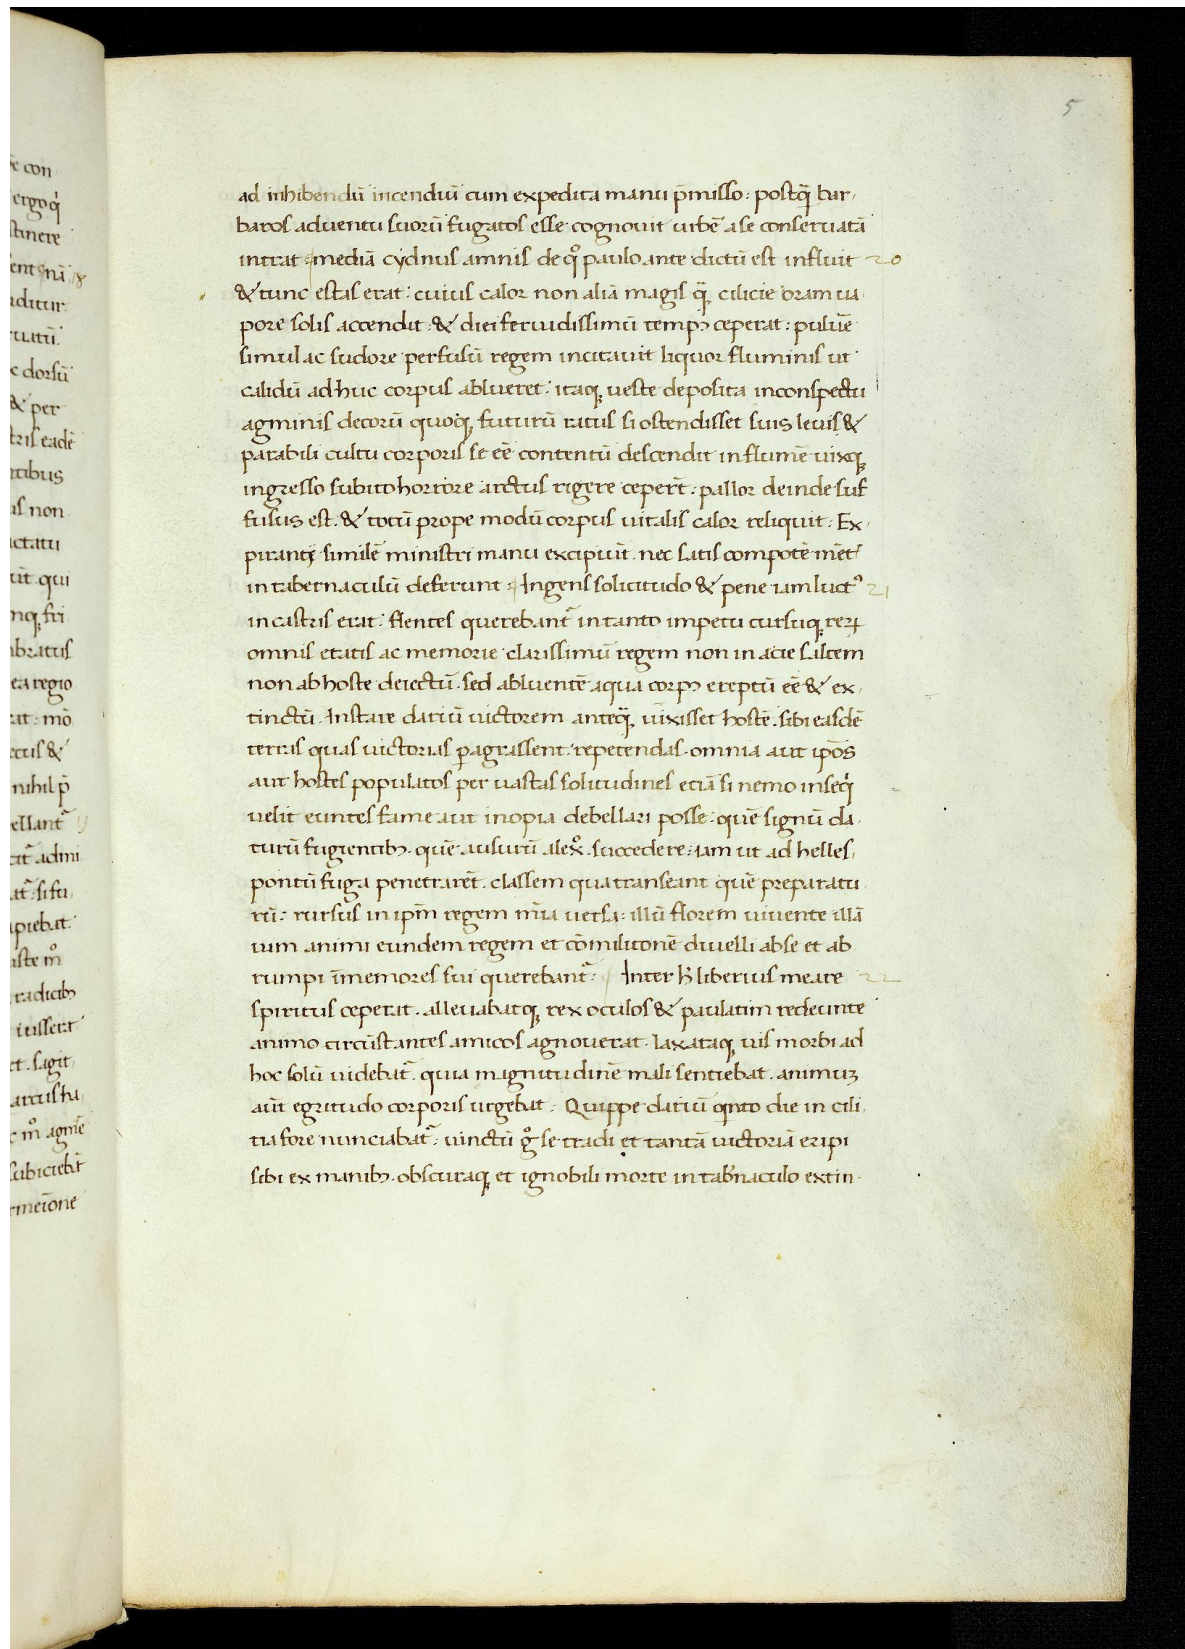 5
ad inhibendū incendiū cum expedita manu p̄misso: postq̄ bar
baros aduentu suorū fugatos esse cognouit urbē a se conseruatā
intrat mediā cydnus amnis de qͦ paulo ante dictū est influit 20
& tunc estas erat: cuius calor non aliā magis q̄ cilicie oram ua
pore solis accendit & diei feruidissimū tempꝰ ceperat: puluē
simul ac sudore perfusū regem incitauit liquor fluminis ut
calidū ad huc corpus ablueret: itaqꝫ ueste deposita inconspectu
agminis decorū quoqꝫ futurū ratus si ostendisset suis leuis &
parabili cultu corporis se eē contentū descendit in flumē uixqꝫ
ingresso subito horrore artus rigere ceper̄t: pallor deinde suf
fusus est. & totū prope modū corpus uitalis calor reliquit: Ex
piranti similē ministri manu excipiūt. nec satis compotē mēt
in tabernaculū deferunt: Ingens solicitudo & pene iam luctꝰ 21
in castris erat: flentes querebant᷑ in tanto impetu cursuqꝫ reꝝ
omnis etatis ac memorie clarissimū regem non in acie saltem
non ab hoste deiectū. sed abluentē aqua corpꝰ ereptū eē & ex
tinctū. Instare dariū uictorem anteq̄ uixisset hostē. sibi easdē
terras quas uictorias ꝑagrassent: repetendas. omnia aut ip̄os
aut hostes populatos per uastas solitudines etiā si nemo inseqͥ
uelit euntes fame aut inopia debellari posse: quē signū da
turū fugientibꝰ. quē ausurū alex̊. succedere: iam ut ad helles
pontū fuga penetrarēt. classem qua transeant quē preparatu
rū: rursus in ip̄m regem mīa uersa: illū florem iuuente illā
uim animi eundem regem et cōmilitonē diuelli abse et ab
rumpi īmemores sui querebant᷑: Inter h̄ liberius meare 22
spiritus ceperat. alleuabatqꝫ rex oculos & paulatim redeunte
animo circūstantes amicos agnouerat. laxataqꝫ uis morbi ad
hoc solū uidebat᷑. quia magnitudinē mali sentiebat. animuꝫ
aūt egritudo corporis urgebat: Quippe dariū qͥnto die in cili
tia fore nunciabat᷑: uinctū gͦ se tradi et tantā uictoriā eripi
sibi ex manibꝰ. obscuraqꝫ et ignobili morte in tab̄naculo extin